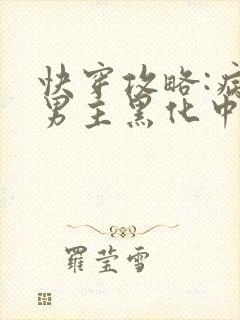 快穿攻略:病
男主黑化中
羅莹雪